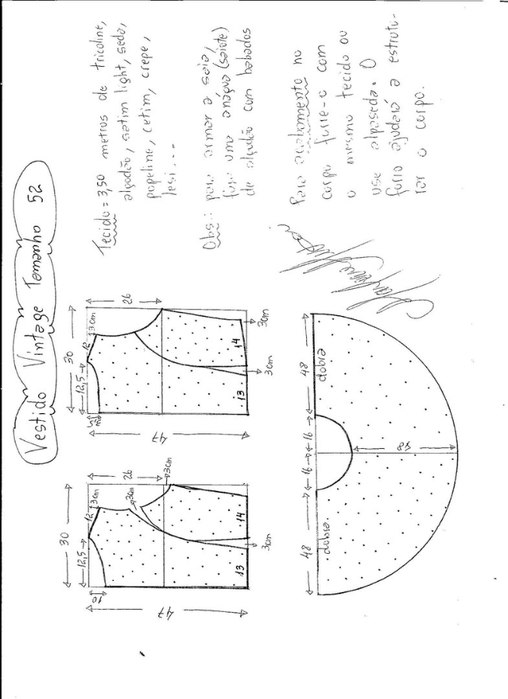 Vestido Vintage Tamanho 52
Tecido = 3,50 metros de tricoline,
algodão, cetim light, seda,
popeline, cetim, crepe,
lesi...
Obs: para armar a saia,
faça uma anágua (saiote)
de algodão com babados
Para acabamento no
corpo forre-o com
o mesmo tecido ou
use alpaseda. O
forro ajudará a estrutu-
rar o corpo.
30
12,5
12
3cm
10
26
3cm
3cm
47
13
14
3cm
30
12,5
12
3cm
26
47
13
14
3cm
3cm
48
16
16
48
dobra
dobra
48